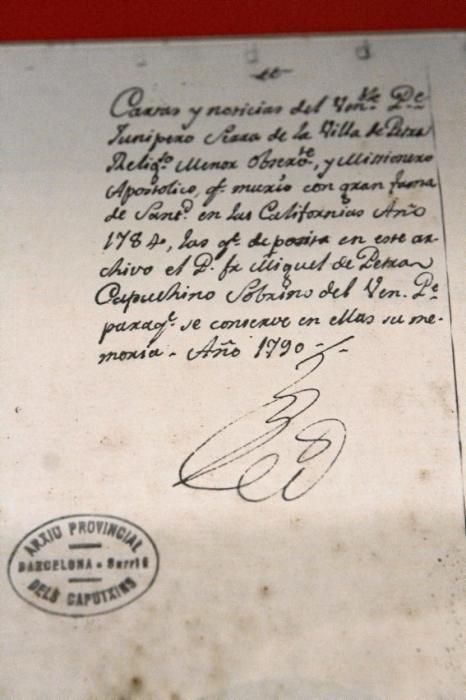 Cartas y noticias del Ven.ble P.e
Junipero Serra de la Villa de Petra
Relig.o Menor Obserb.te, y Missionero
Apostolico, q.e murio con gran fama
de Sant.d en las Californias Año
1784, las q.e deposita en este ar-
chivo el P. fr Miguel de Petra
Capuchino Sobrino del Ven. P.e
paraq.e se conserve en ellas su me-
moria. Año 1790
ARXIU PROVINCIAL
BARCELONA - Sarrià
DELS CAPUTXINS